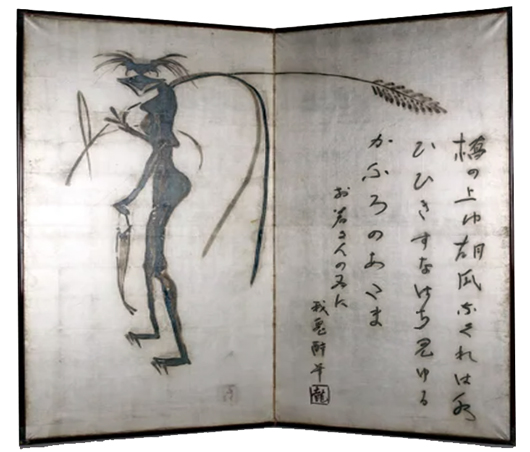 橋の上ゆ胡瓜なくれは水
ひひきすなはち見ゆる
かふろのあたま
お若さんの為に
我鬼酔筆
龍